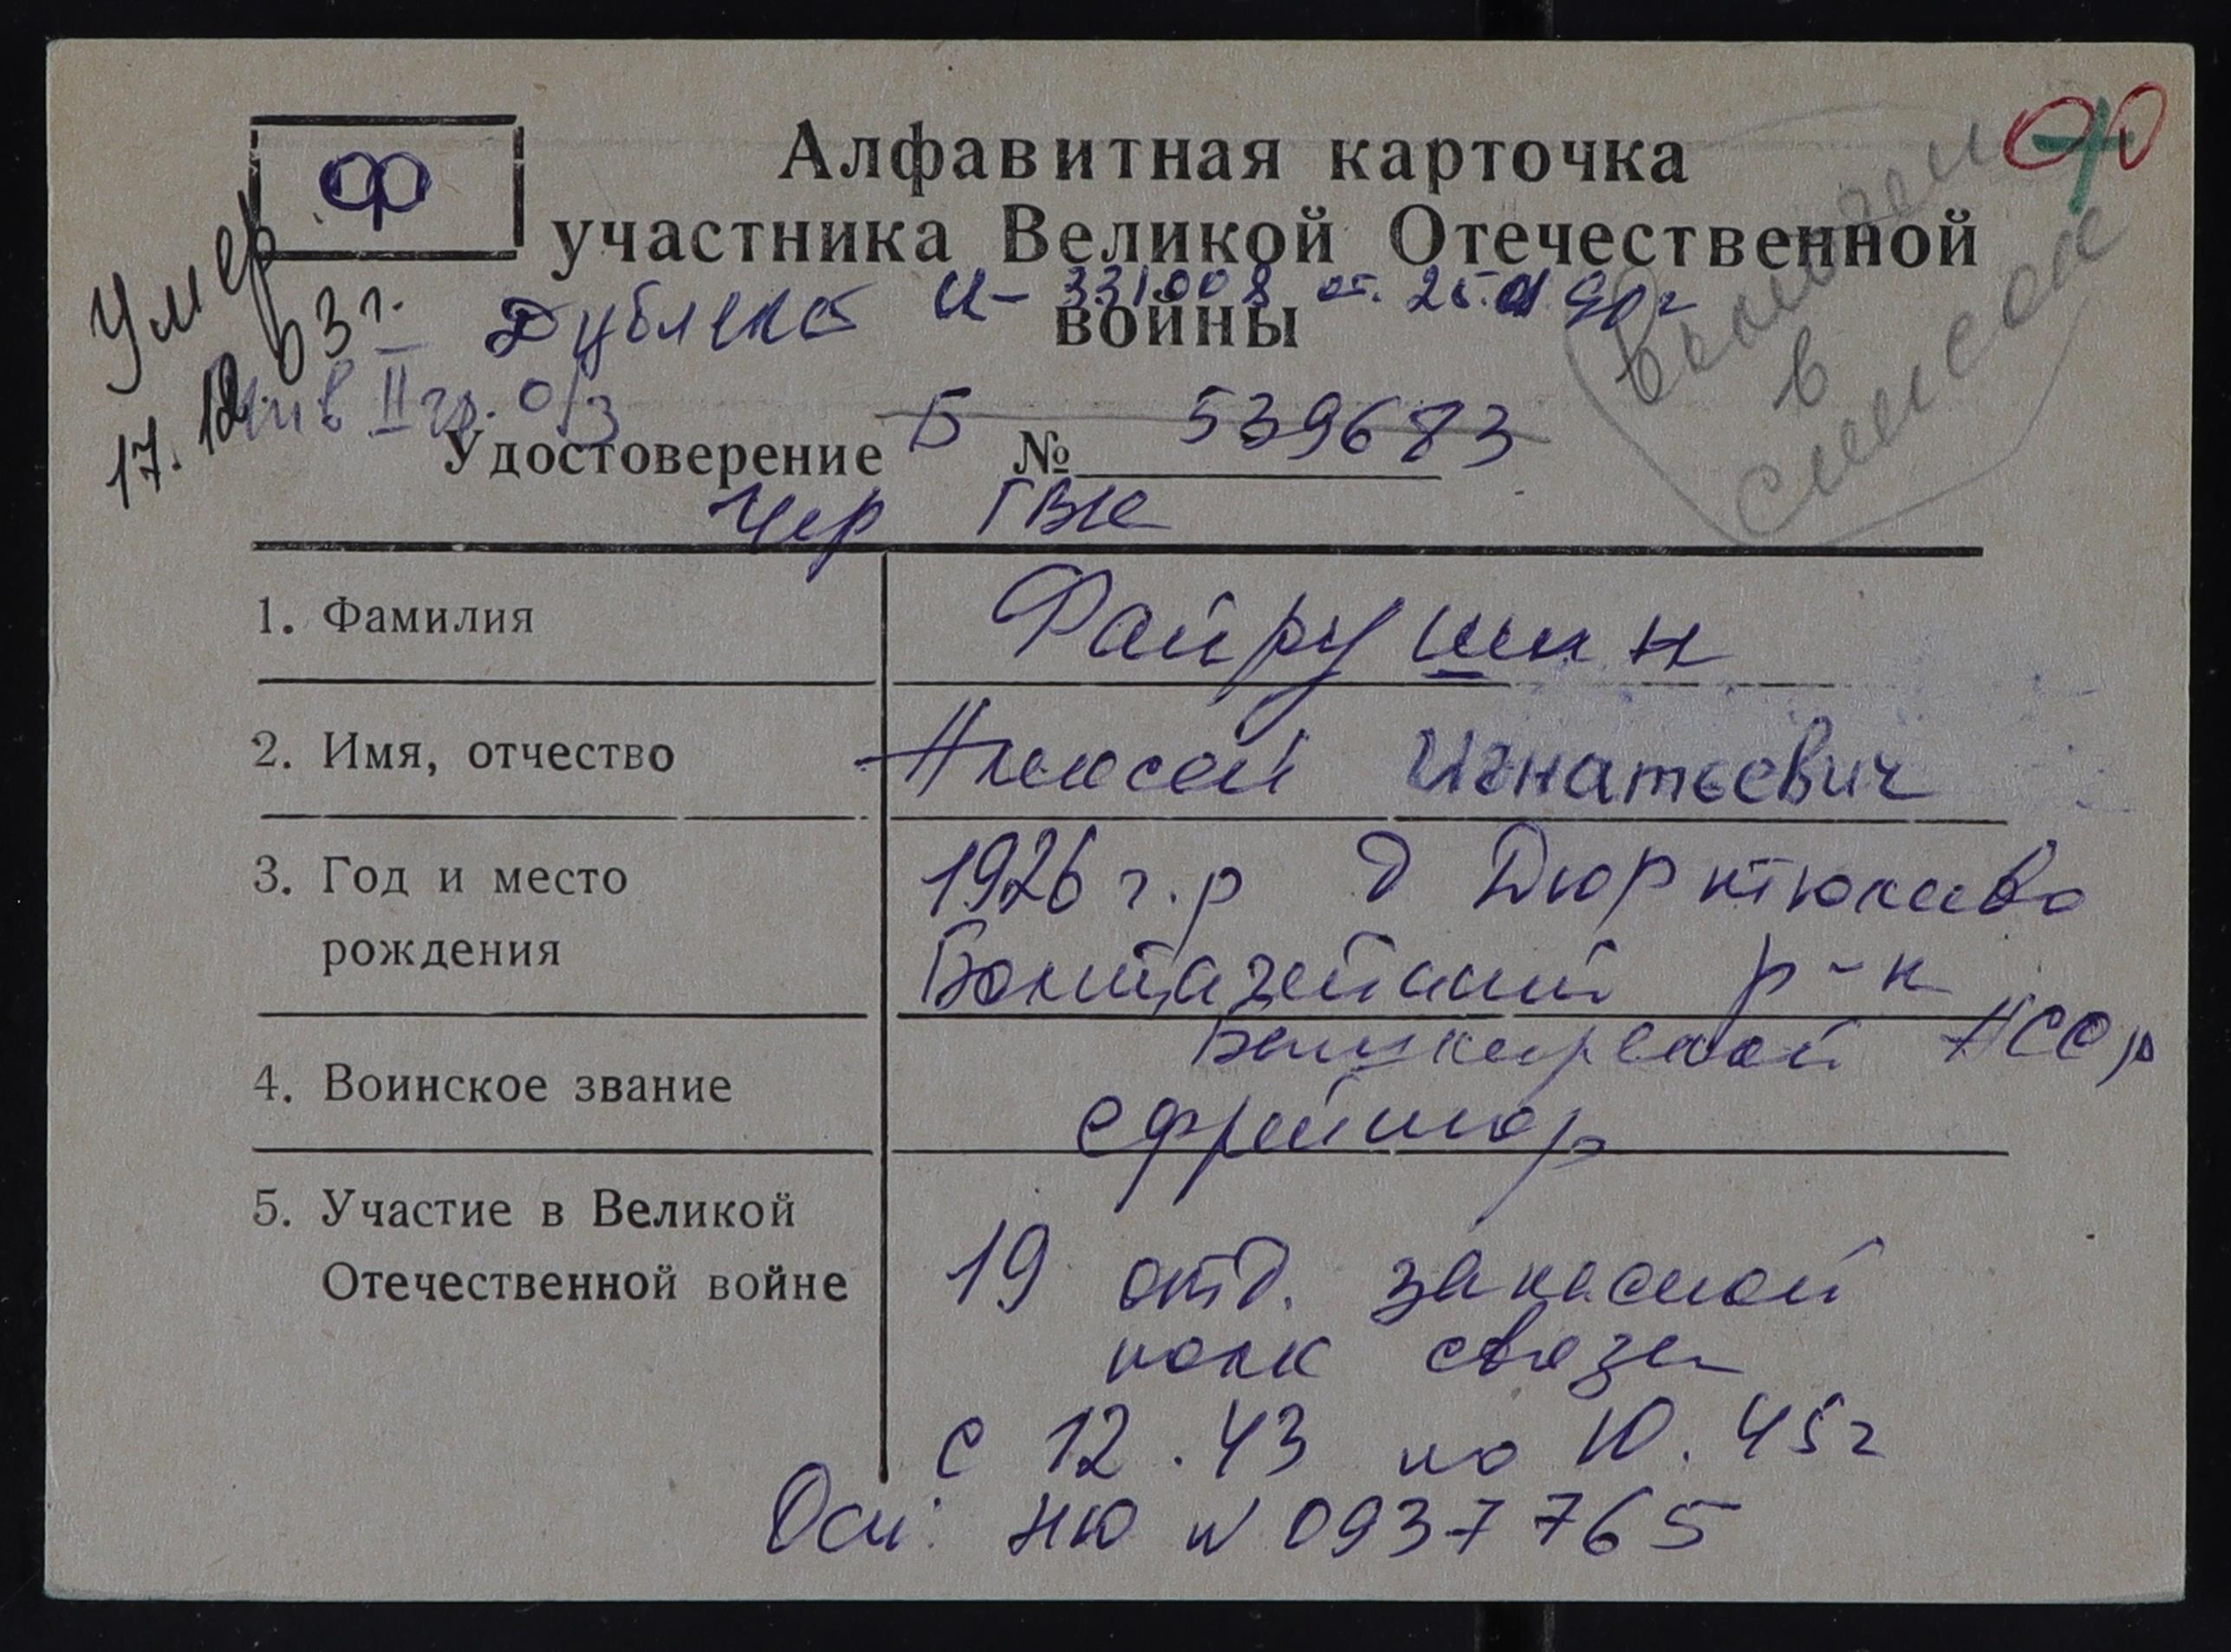 Ф
Алфавитная карточка
участника Великой Отечественной
войны
Умер
17.12.03 г.
Дубликат И- 331008 от. 25.01.90 г
Инв II гр. о/з
Включен
в
список
Удостоверение Б № 539683
Чер ГВК
1. Фамилия Файрушин
2. Имя, отчество Алексей Игнатьевич
3. Год и место 1926 г.р д Дюртюлево
рождения Бакалинский р-н
Башкирской АССР
4. Воинское звание ефрейтор
5. Участие в Великой
Отечественной войне 19 отд. запасной
полк связи
с 12.43 по 10.45 г
Осн: НЮ № 0937765